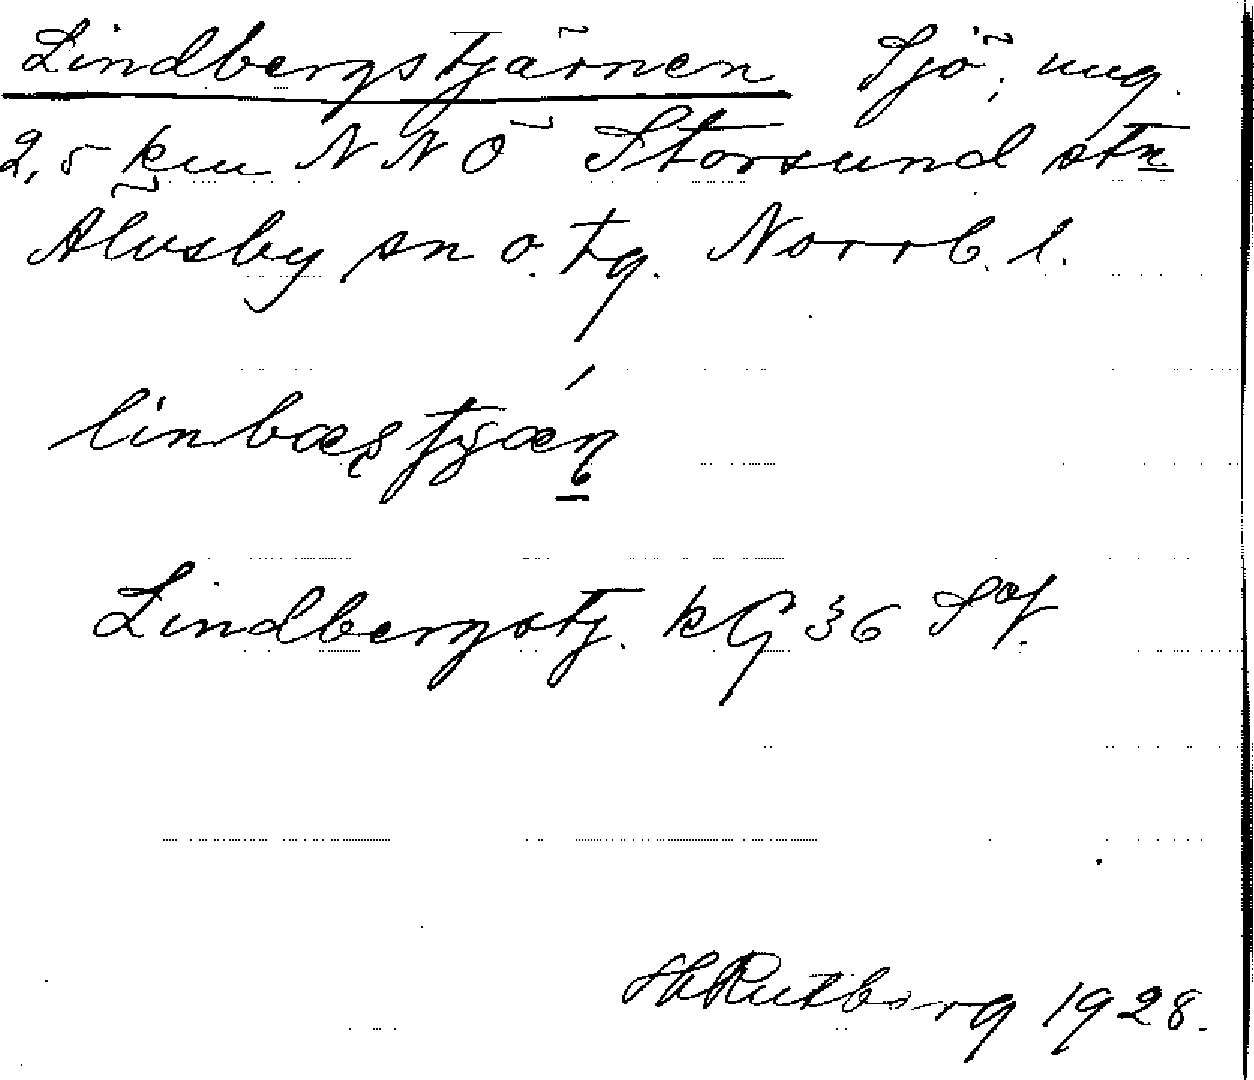 Lindbergstjärnen Sjö, ung.
2,5 km NNÖ Storsund stn
Älvsby sn o. tg. Norrb. l.
linbæʂtjǽɳ
Lindbergstj. kG 36 Söf.
H Rutberg 1928.